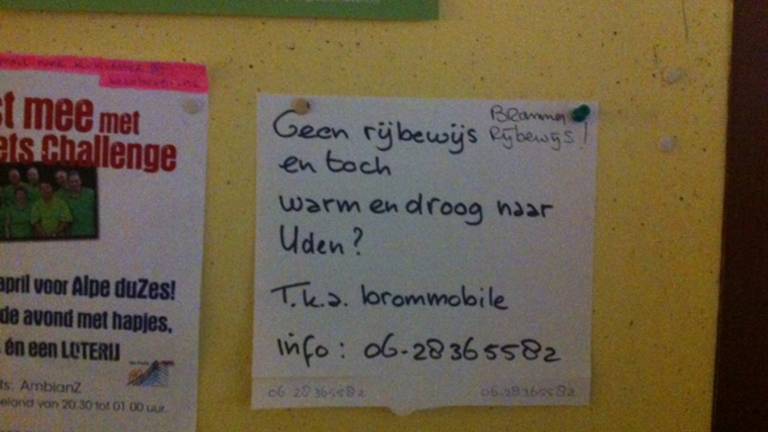 st mee met
ets Challenge
april voor Alpe duZes!
de avond met hapjes,
én een LOTERIJ
ts: AmbianZ
eland van 20.30 tot 01.00 uur.
Geen rijbewijs
Brommer
Rijbewijs!
en toch
warm en droog naar
Uden?
T.k.a. brommobile
info: 06-28365582
06-28365582
06-28365582